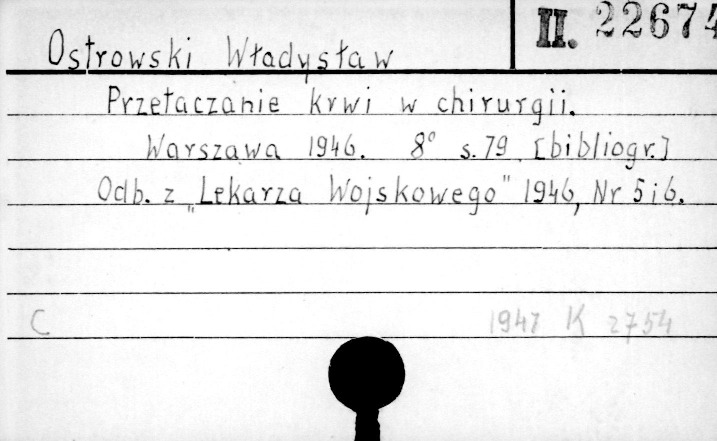 Ostrowski Władysław II. 22674
Przetaczanie krwi w chirurgii.
Warszawa 1946. 8° s. 79 [bibliogr.]
Odb. z „Lekarza Wojskowego" 1946, Nr 5 i 6.
C 1947 K 2754